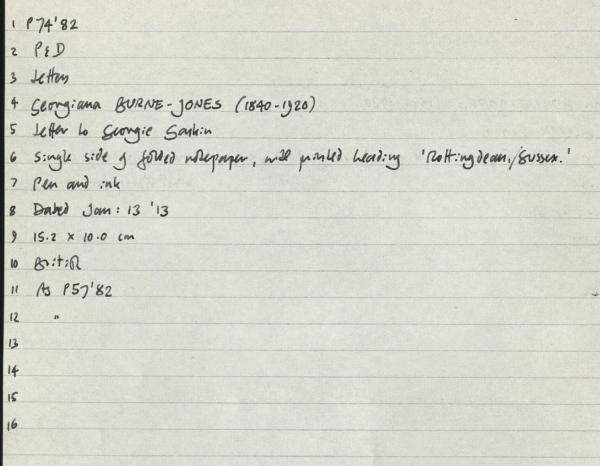 1 P74'82
2 P&D
3 Letters
4 Georgiana BURNE-JONES (1840-1920)
5 Letter to Georgie Gaskin
6 Single side of folded notepaper, with printed heading 'Rottingdean,/Sussex.'
7 Pen and ink
8 Dated Jan: 13 '13
9 15.2 x 10.0 cm
10 British
11 As P57'82
12 "
13
14
15
16